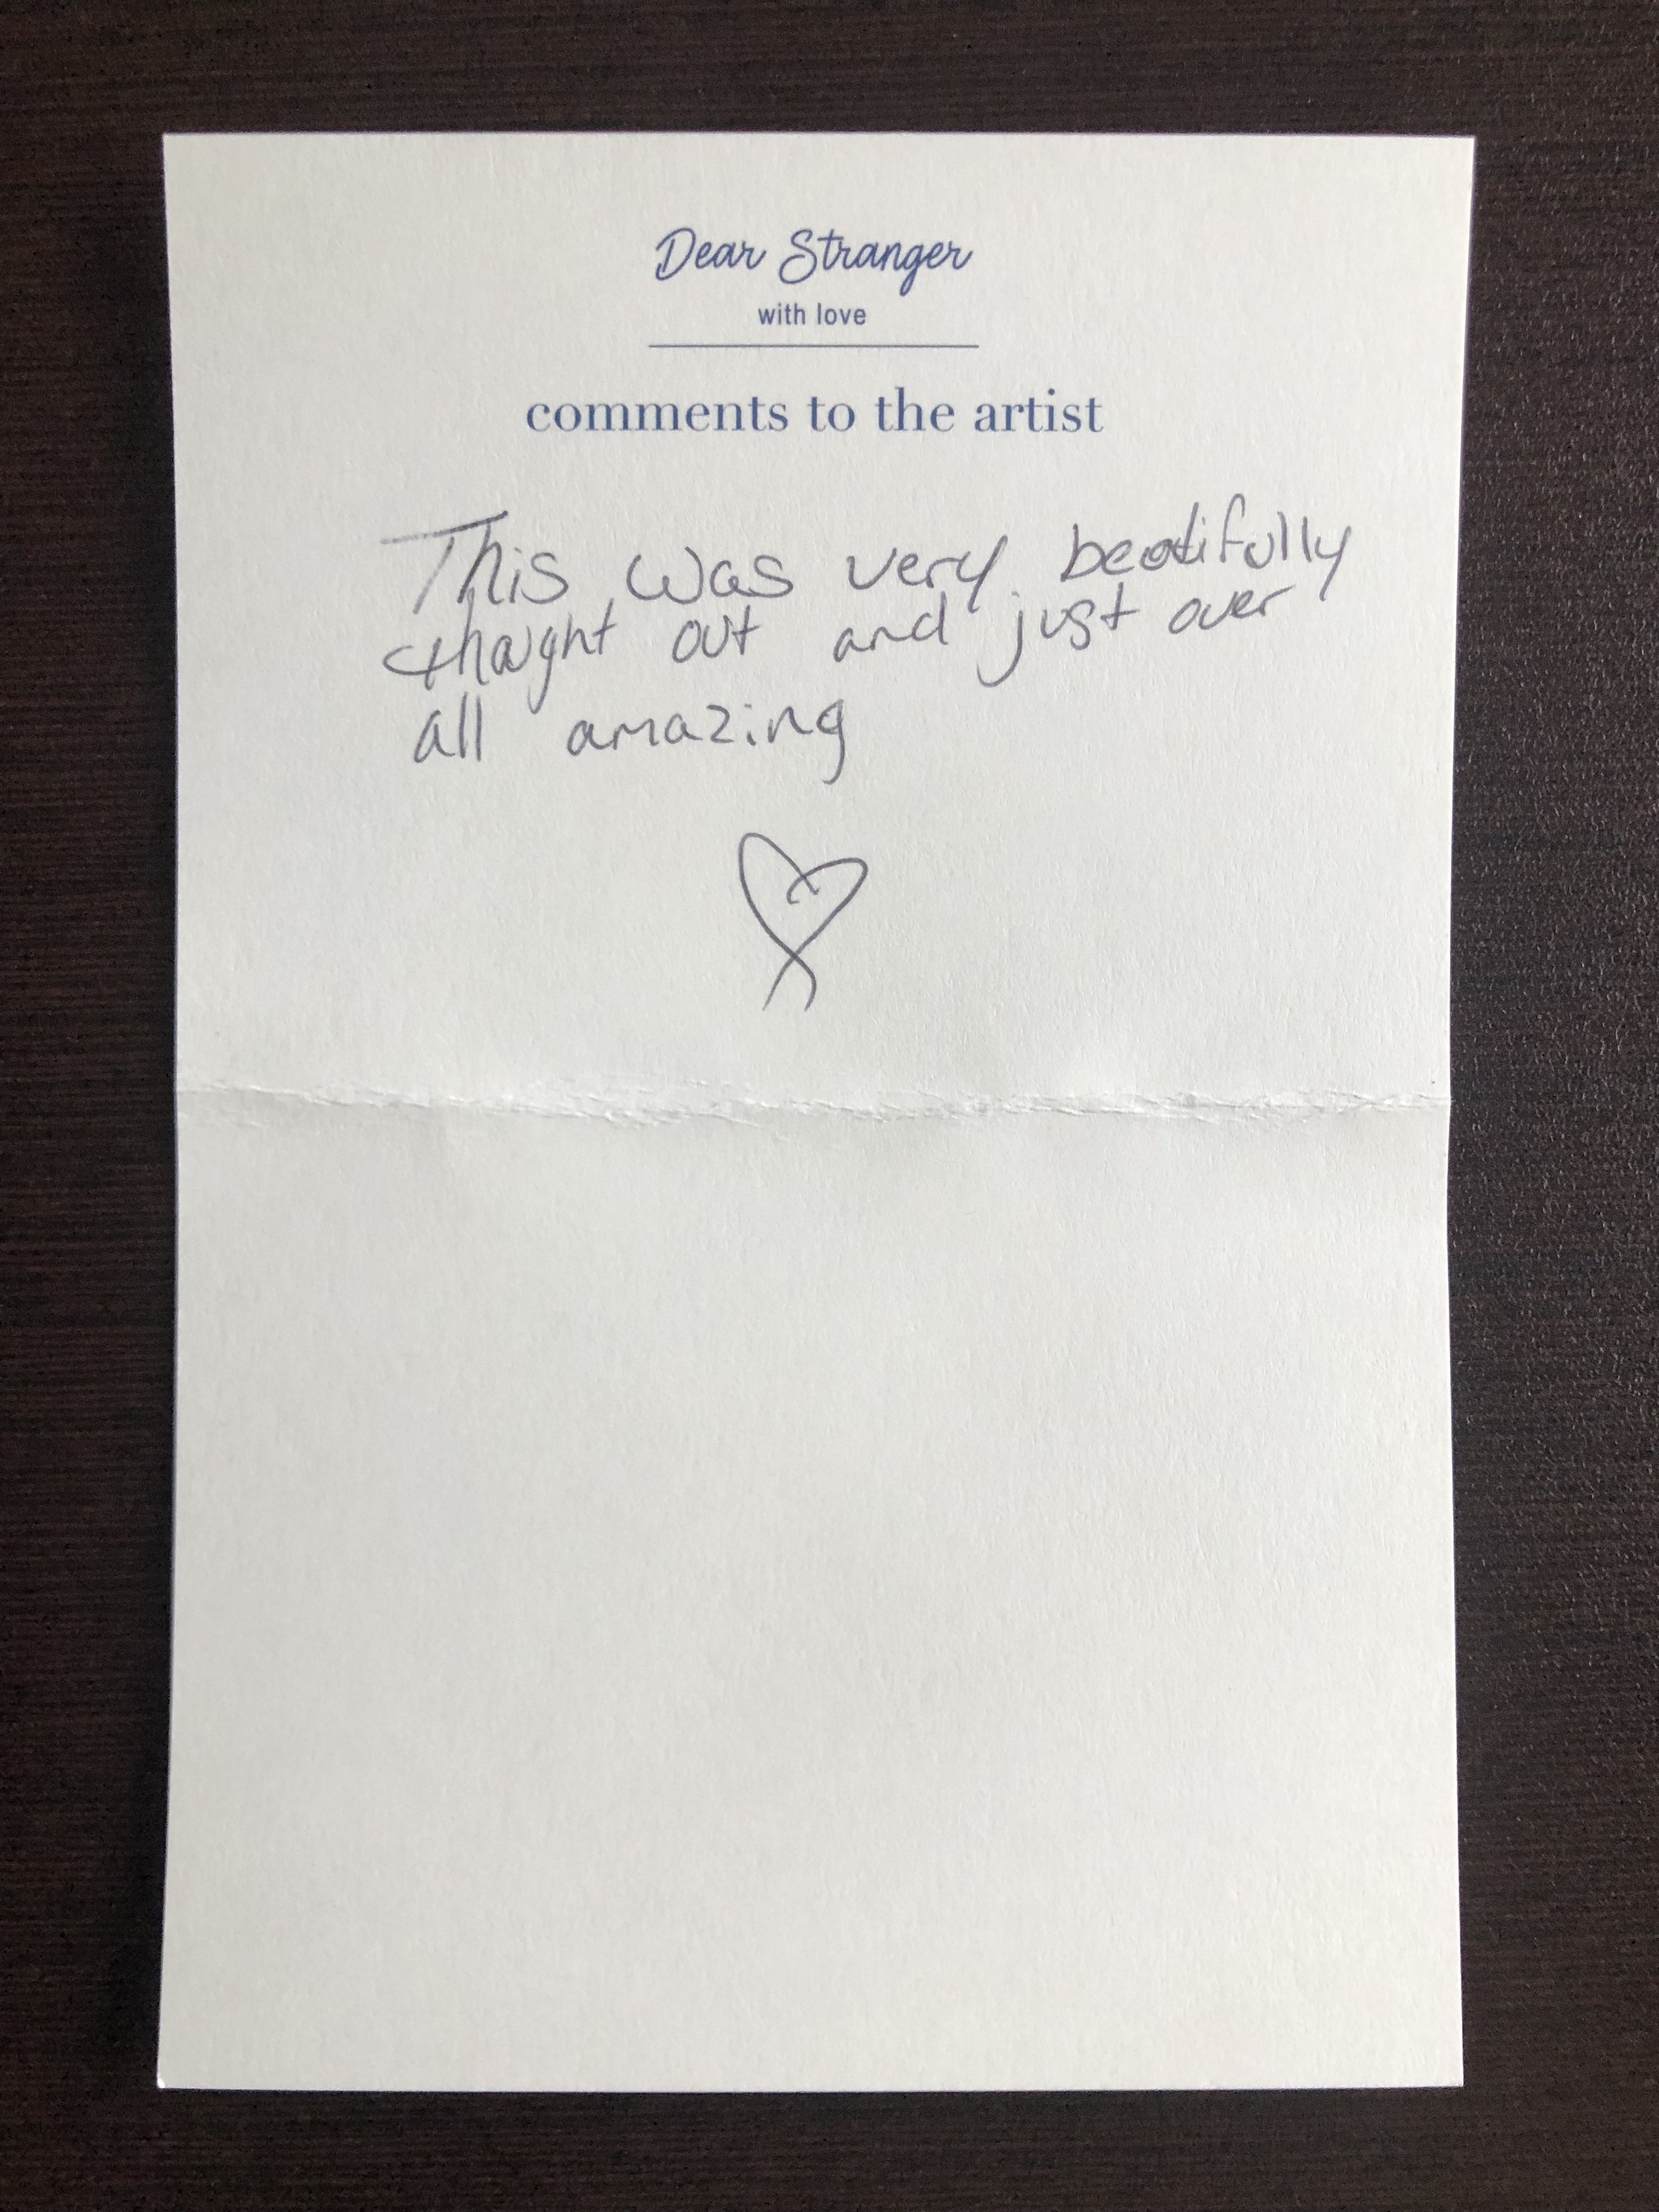 Dear Stranger
with love
comments to the artist
This was very beatifully
thought out and just over
all amazing